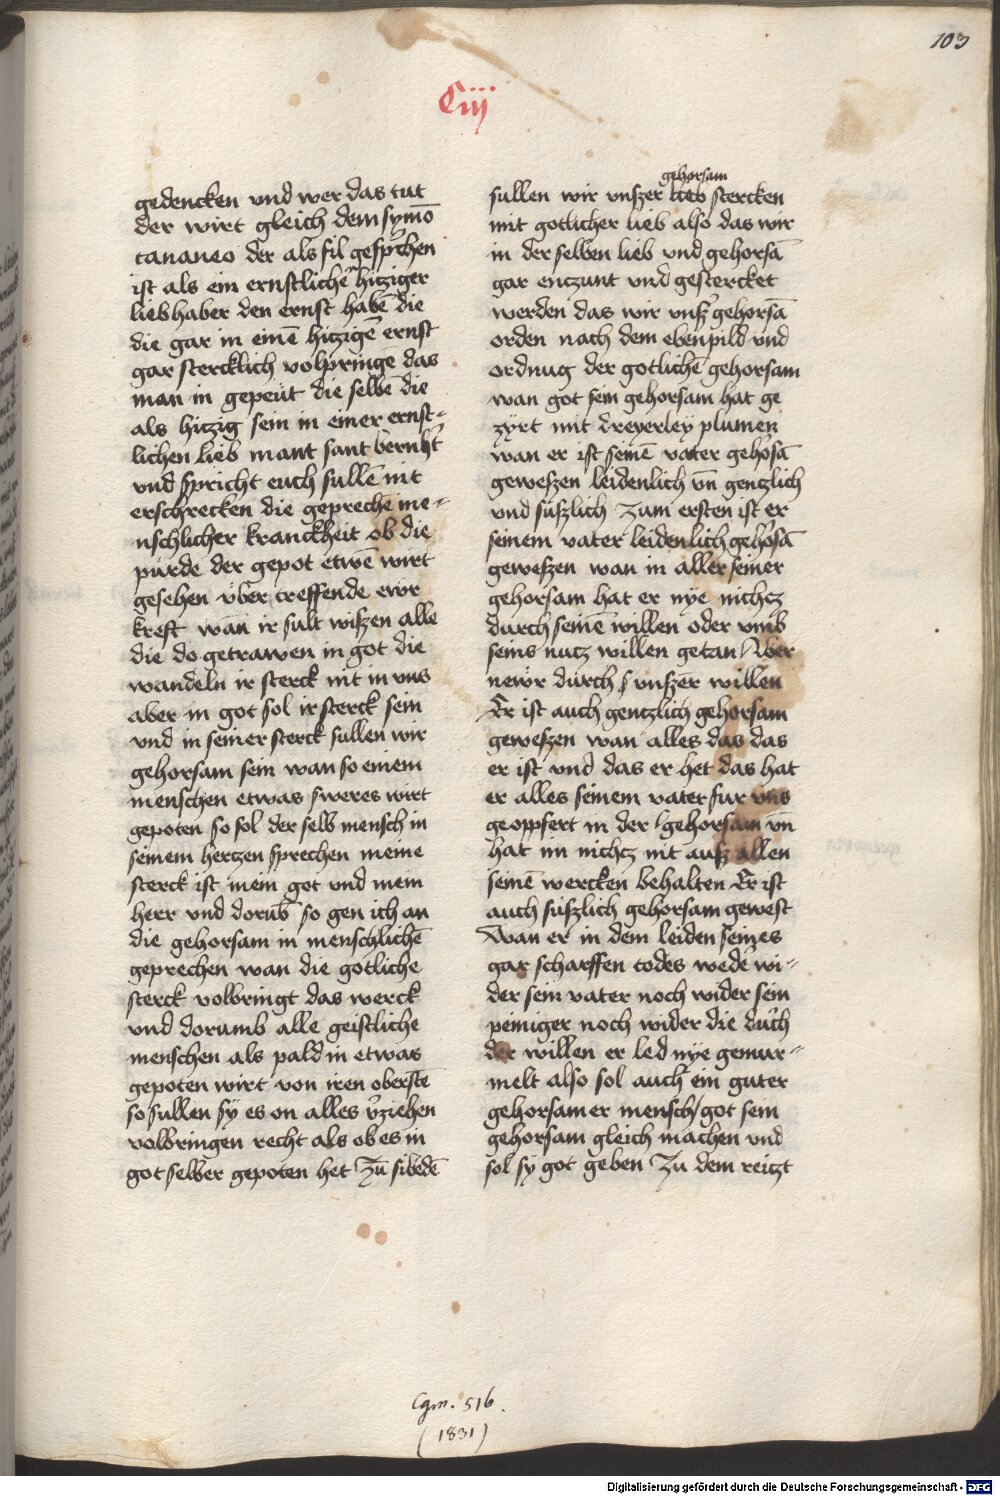 103
Ciij
gedencken und wer das tut
der wirt gleich dem symō
cananeo der als fil gesp̄chen
ist als ein ernstlichē hicziger
liebhaber den ernst habē die
die gar in einē hiczigē ernst
gar stercklich volpringē das
man in gepeut die selbē die
als hiczig sein in einer ernst-
lichen lieb mant sant bernh̄t
vnd spricht euch sullē nit
erschrecken die geprechē me-
nschlicher kranckheit ob die
purde der gepot etwē wirt
gesehen vber treffende ewr
kreft wan ir sult wiszen alle
die do getrawen in got die
wandeln ir sterck nit in vns
aber in got sol ir sterck sein
vnd in seiner sterck sullen wir
gehorsam sein wan so einem
menschen etwas sweres wirt
gepoten so sol der selb mensch in
seinem hertzen sprechen meine
sterck ist mein got vnd mein
herr vnd dorūb so gen ich an
die gehorsam in menschlichē
geprechen wan die gotliche
sterck volbringt das werck
vnd dorumb alle geistliche
menschen als pald in etwas
gepoten wirt von iren oberstē
so sullen sy es on alles v̄ziehen
volbringen recht als ob es in
got selber gepoten het Zū sibēdē
gehorsam
sullen wir vnszer lieb stercken
mit gotlicher lieb also das wir
in der selben lieb vnd gehorsā
gar enczunt vnd gestercket
werden das wir vnsz̄ gehorsā
orden nach dem ebenpild vnd
ordnug der gotlichē gehorsam
wan got sein gehorsam hat ge
zyrt mit dreyerley plumen
wan er ist seinē vater gehorsā
geweszen leidenlich vn̄ genczlich
vnd suszlich Zum ersten ist er
seinem vater leidenlich gehorsā
geweszen wan in aller seiner
gehorsam hat er nye nichcz
durch seine willen oder vmb
seins nutz willen getan Aber
newr durch vnszer willen
Er ist auch genczlich gehorsam
geweszen wan alles das das
er ist vnd das er het das hat
er alles seinem vater fur vns
geopfert in der gehorsam vn̄
hat im nichcz nit ausz allen
seinē wercken behalten Er ist
auch suszlich gehorsam gewest
Wan er in dem leiden seines
gar scharffen todes wedē wi-
der sein vater noch wider sein
peiniger noch wider die durch
der willen er led nye gemur-
melt also sol auch ein guter
gehorsamer mensch got sein
gehorsam gleich machen vnd
sol sy got geben Zu dem reiczt
Cgm. 516.
(1831)
Digitalisierung gefördert durch die Deutsche Forschungsgemeinschaft - DFG